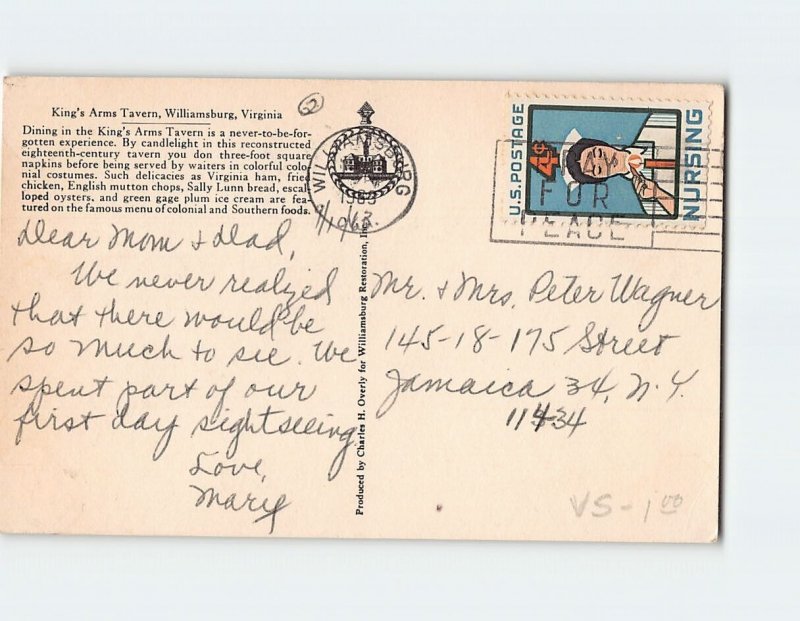 King's Arms Tavern, Williamsburg, Virginia
Dining in the King's Arms Tavern is a never-to-be-for-
gotten experience. By candlelight in this reconstructed
eighteenth-century tavern you don three-foot square
napkins before being served by waiters in colorful colo-
nial costumes. Such delicacies as Virginia ham, fried
chicken, English mutton chops, Sally Lunn bread, escal-
loped oysters, and green gage plum ice cream are fea-
tured on the famous menu of colonial and Southern foods.
62
WILLIAMSBURG
1963
9/10/63
Dear Mom & Dad,
We never realized
that there would be
so much to see. We
spent part of our
first day sightseeing.
Love,
Marie
Produced by Charles H. Overly for Williamsburg Restoration, Inc.
U.S. POSTAGE
4¢
NURSING
PRAY
FOR
PEACE
Mr. & Mrs. Peter Wagner
145-18-175 Street
Jamaica 34, N.Y.
11434
VS-100